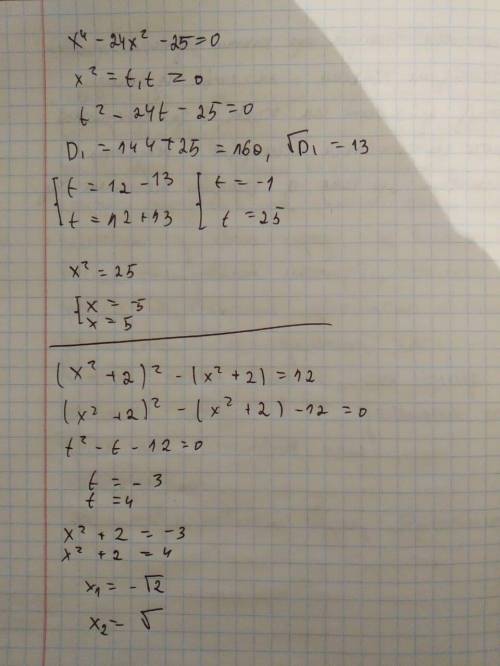 x⁴ - 24x² - 25 = 0
x² = t, t ≥ 0
t² - 24t - 25 = 0
D₁ = 144 + 25 = 169, √D₁ = 13
[ t = 12 - 13 [ t = -1
[ t = 12 + 13 [ t = 25
x² = 25
[ x = -5
[ x = 5
(x² + 2)² - (x² + 2) = 12
(x² + 2)² - (x² + 2) - 12 = 0
t² - t - 12 = 0
t = - 3
t = 4
x² + 2 = -3
x² + 2 = 4
x₁ = - √2
x₂ = √